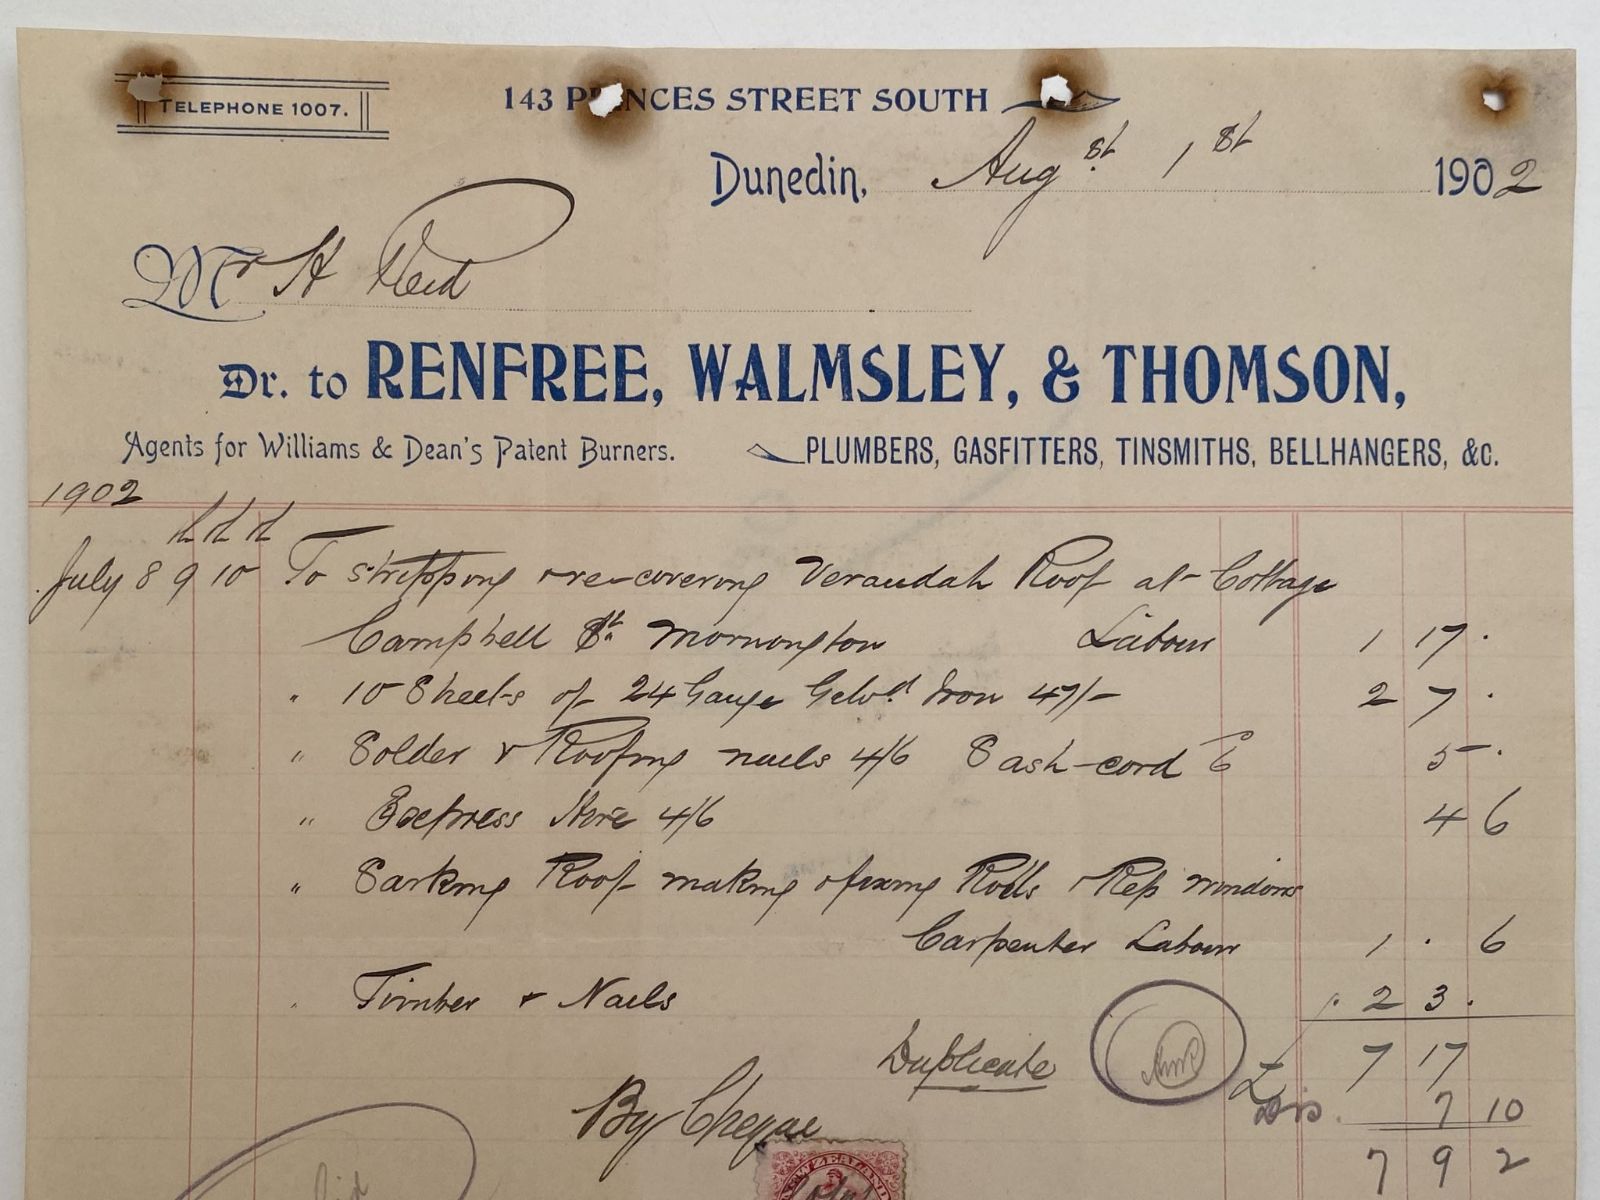 TELEPHONE 1007.
143 PRINCES STREET SOUTH
Dunedin, Augst. 1st 1902
Mr H Reid
Dr. to RENFREE, WALMSLEY, & THOMSON,
Agents for Williams & Dean's Patent Burners. PLUMBERS, GASFITTERS, TINSMITHS, BELLHANGERS, &c.
1902
July 8th 9th 10th To stripping & re-covering Verandah Roof at Cottage
Campbell St. Mornington Labour 1 17 .
" 10 Sheets of 24 Gauge Galvd. Iron 47/- 2 7 .
" Solder & Roofing nails 4/6 Sash-cord 6 5 - .
" Express Hire 4/6 4 6
" Sarking Roof making & fixing Rolls & Rep windows
Carpenter Labour 1 . 6
" Timber & Nails . 2 3 .
Duplicate £ 7 17
Dis. 7 10
By Cheque
7 9 2